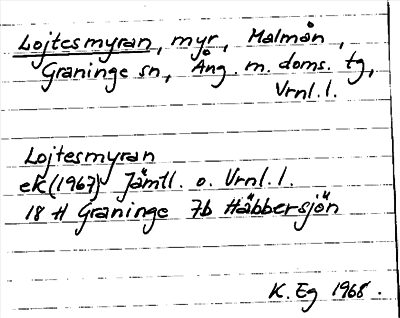 Lojtesmyran, myr, Malmån,
Graninge sn, Ång. m. doms. tg,
Vrnl. l.
Lojtesmyran
ek (1967) Jämtl. o. Vrnl. l.
18 H Graninge 7b Häbbersjön
K. Eg 1968.